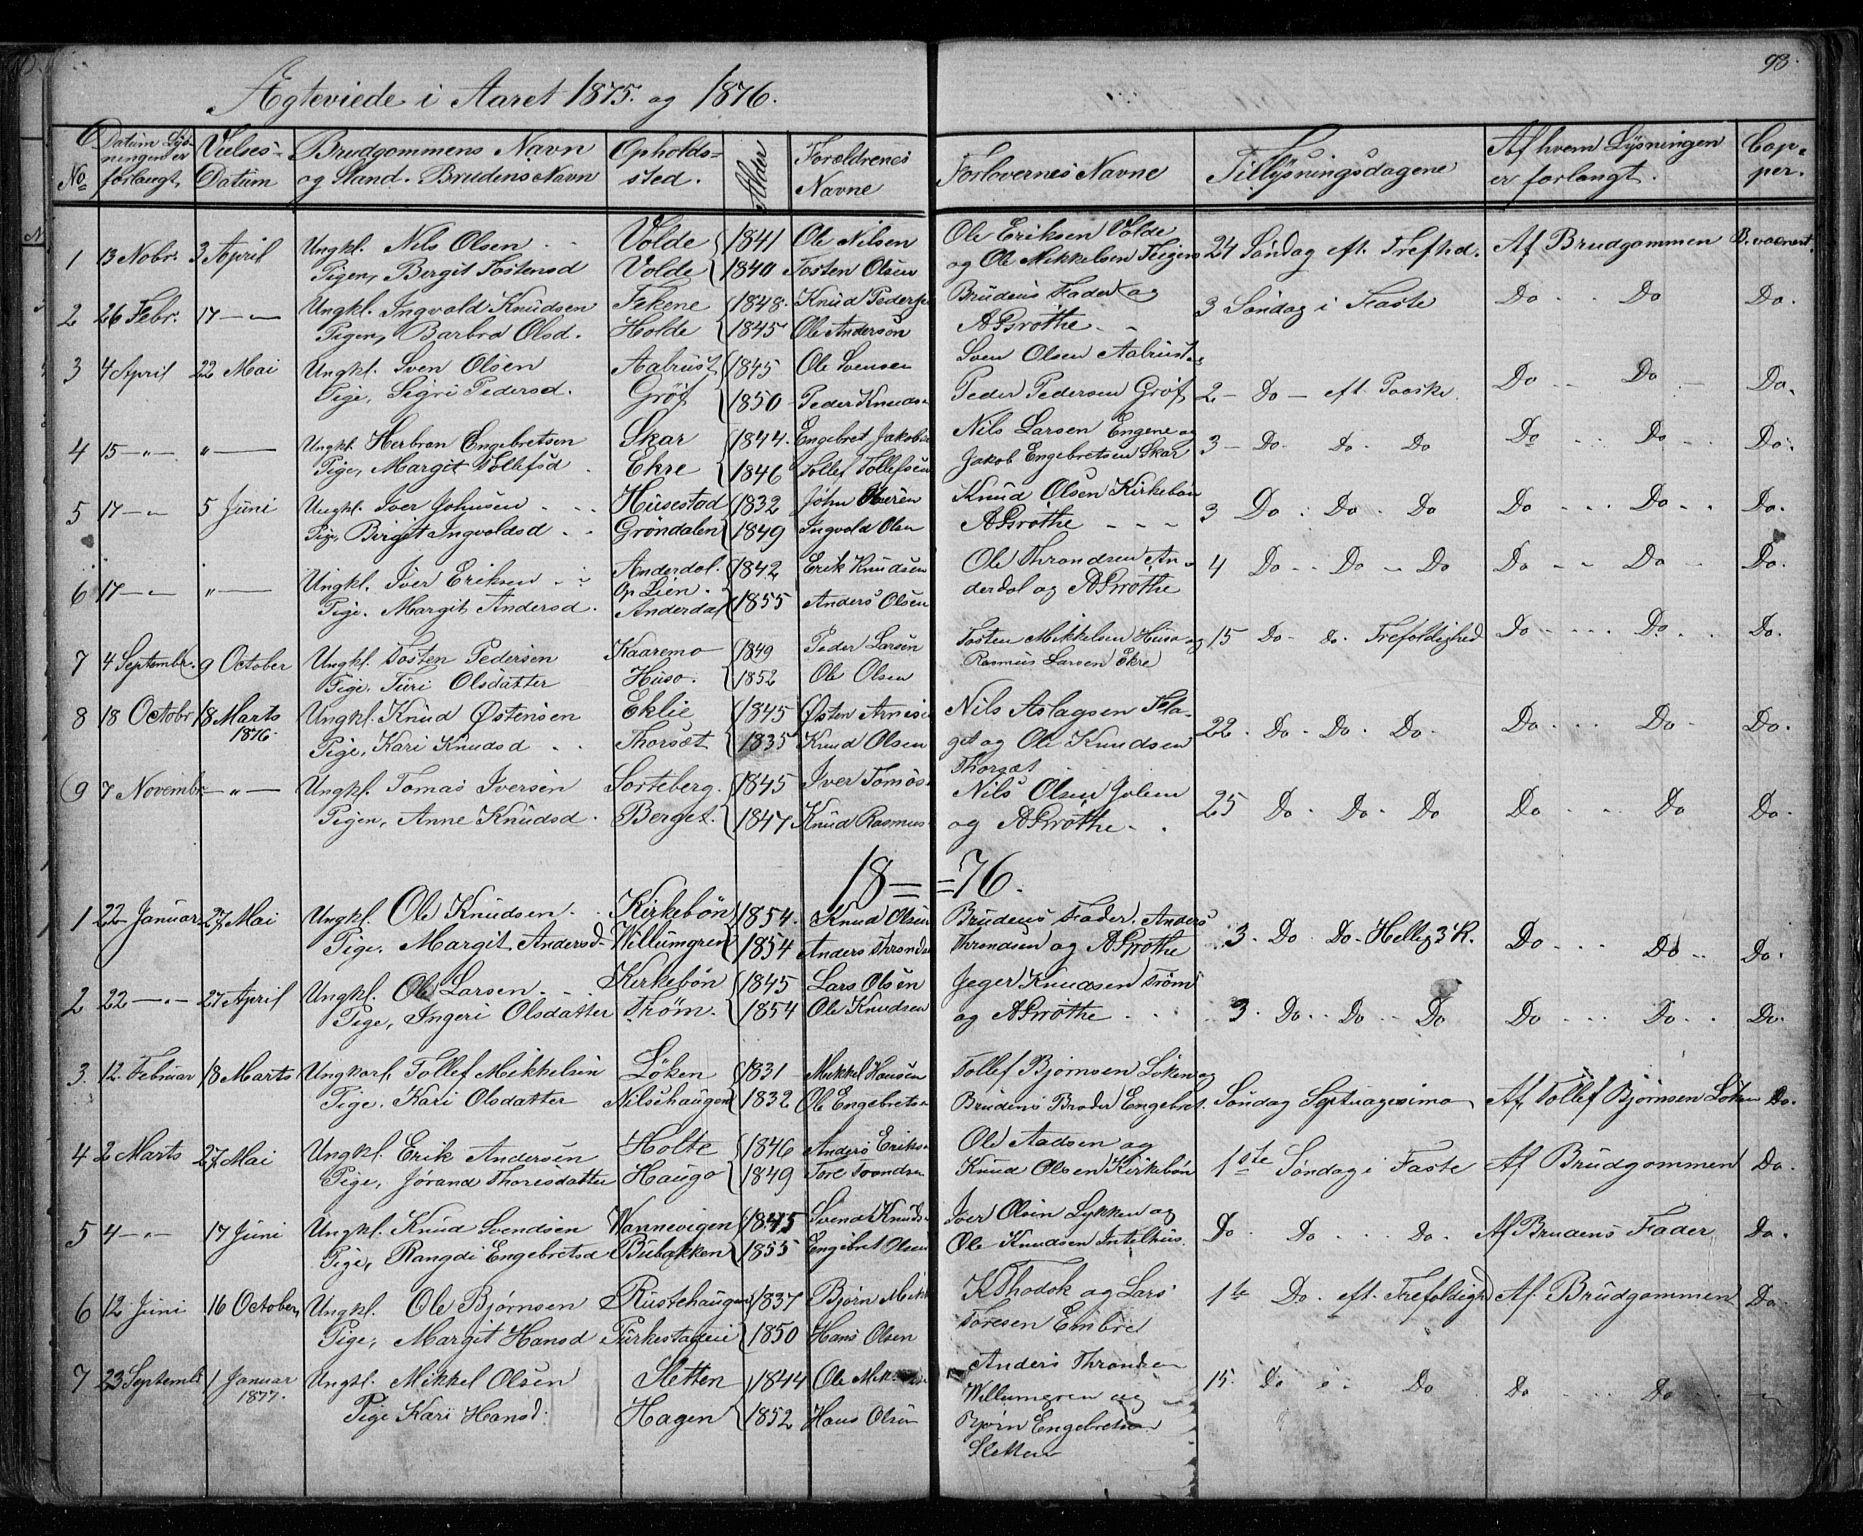 93.
Ægteviede i Aaret 1875. og 1876.
No Datum Lysningen er forlangt, Vielses-Datum Brudgommens Navn og Stand. Brudens Navn Opholdssted. Alder Forældrenes Navne Forlovernes Navne Tillysningsdagene Af hvem Lysningen er forlangt. Copper.
1 13 Nobr. 3 April Ungkl. Nils Olsen Volde 1841 Ole Nilsen Ole Eriksen Volde 24 Søndag eft. Trefhd. Af Brudgommen
Pigen, Bergit Tostensd Volde 1840 Tosten Olsen og Ole Mikkelsen
2 26 Febr. 17 — " — Ungkl. Ingvald Knudsen 1848. Knud Peders Brudens Fader og 3 Søndag i Faste Do Do Do.
Pigen, Barbro Olsd. Holde 1845 Ole Anderson AGrøthe
3 4 April 22 Mai Ungkl. Sven Olsen Aalrust 1845 Ole Svensen Sven Olsen Aalrust 2 — Do — eft. Paaske. Do Do Do.
Pige, Sigri Pedersd. Grøf 1850 Peder Knuds Peder Pedersen Grøf
4 15 — " — " — Ungkl. Herbran Engebretsen Skar 1844. Engebret Jakobs Nils Larsen Engene og 3 — Do. Do. Do Do Do Do.
Pige, Margit Tollefsd Ekre 1846 Tollef Tollefsen Jakob Engebretsen Skar
5 17 — " — 5 Juni Ungkl. Iver Johnsen Husestad 1832 John Knud Olsen Kirkebøn 3 Do. Do. Do Do Do Do.
Pige, Birgit Ingvaldsd Grøndalen 1849 Ingvald Olsen AGrøthe
6 17 — " — " — Ungkl. Iver Eriksen Anderdal. Op Lien. 1842 Erik Knudsen Ole Throndsen An- 4 Do Do Do Do Do Do.
Pige. Margit Andersd. Anderdal 1855 Anders Olsen derdal og AGrøthe
7 4 Septembr. 9 October Ungkl. Tosten Pedersen Kaaremo 1849 Peder Larsen Tosten Mikkelsen Huso og 15 Do do. Trefoldighed Do Do Do.
Pige. Turi Olsdatter Huso. 1852 Ole Olsen Rasmus Larsen Ekre
8 18 Octobr. 18 Marts 1876. Ungkl. Knud Østensen Eklie 1845 Østen Arnes Nils Aslagsen Fla- 22. Do. Do. Do. Do Do Do.
Pige, Kari Knudsd. Thorsæt 1835 Knud Olsen get og Ole Knudsen
9 7 Novembr — " — Ungkl. Tomas Iversen Sorteberg. 1845 Iver Tomas Nils Olsen 25 Do Do. Do Do Do Do.
Pigen, Anne Knudsd. Berget. 1847 Knud Rasmus og AGrøthe
18 = 76.
1 22 Januar 27 Mai Ungkl. Ole Knudsen. Kirkebøn 1854. Knud Olsen Brudens Fader. Anders 3. Do. Do. Hellig 3 K. Do Do Do.
Pige. Margit Andersd Willumgren 1854 Anders Thronds Throndsen og AGrøthe
2 22 — " — 27 April Ungkl. Ole Larsen. Kirkebøn 1845 Lars Olsen Jeger Knudsen Trøm 3. Do. Do. Do Do Do. Do.
Pige, Ingeri Olsdatter Trøm. 1854 Ole Knudsen og AGrøthe
3. 12. Februar 18 Marts Ungkarl, Tollef Mikkelsen Løken 1831 Mikkel Hansen Tollef Bjørnsen Løken og Søndag Septuagesima Af Tollef Bjørnsen Løken Do.
Pige. Kari Olsdatter Nilsehaugen 1832 Ole Engebretsn Brudens Broder Engebret.
4 2 Marts 27 Mai Ungkl. Erik Andersen Holte 1846 Anders Eriks Ole Aadsen og 1ste Søndag i Faste Af Brudgommen Do.
Pige, Jørand Thorisdatter Haugo 1849 Tore Svendsen Knud Olsen Kirkebøn
5 4 — " — 17 Juni Ungkl. Knud Svendsen Wannevigen 1845 Svend Knuds Iver Olsen Lykken og Do. Do Do. Af Brudens Fader Do.
Pige, Rangdi Engebretsd Bubakken 1855 Engebret Olsen Ole Knudsen Intelhus.
6 12 Juni 16 October, Ungkl. Ole Bjørnsen Rustehaugen 1837 Bjørn Mik KThodok og Lars 1te Do. eft. Trefoldigh Af Brudgommen Do
Pige, Margit Hansd 1850 Hans Olsen Toresen Embre
7 23 Septembr 1 Januar 1877. Ungkl. Mikkel Olsen Sletten 1844 Ole Mik Anders Throndsen 15. Do Do Do Do
Pige Kari Hansd. Hagen 1852 Hans Olsen Willumgren og
Bjørn Engebretsen
Sletten